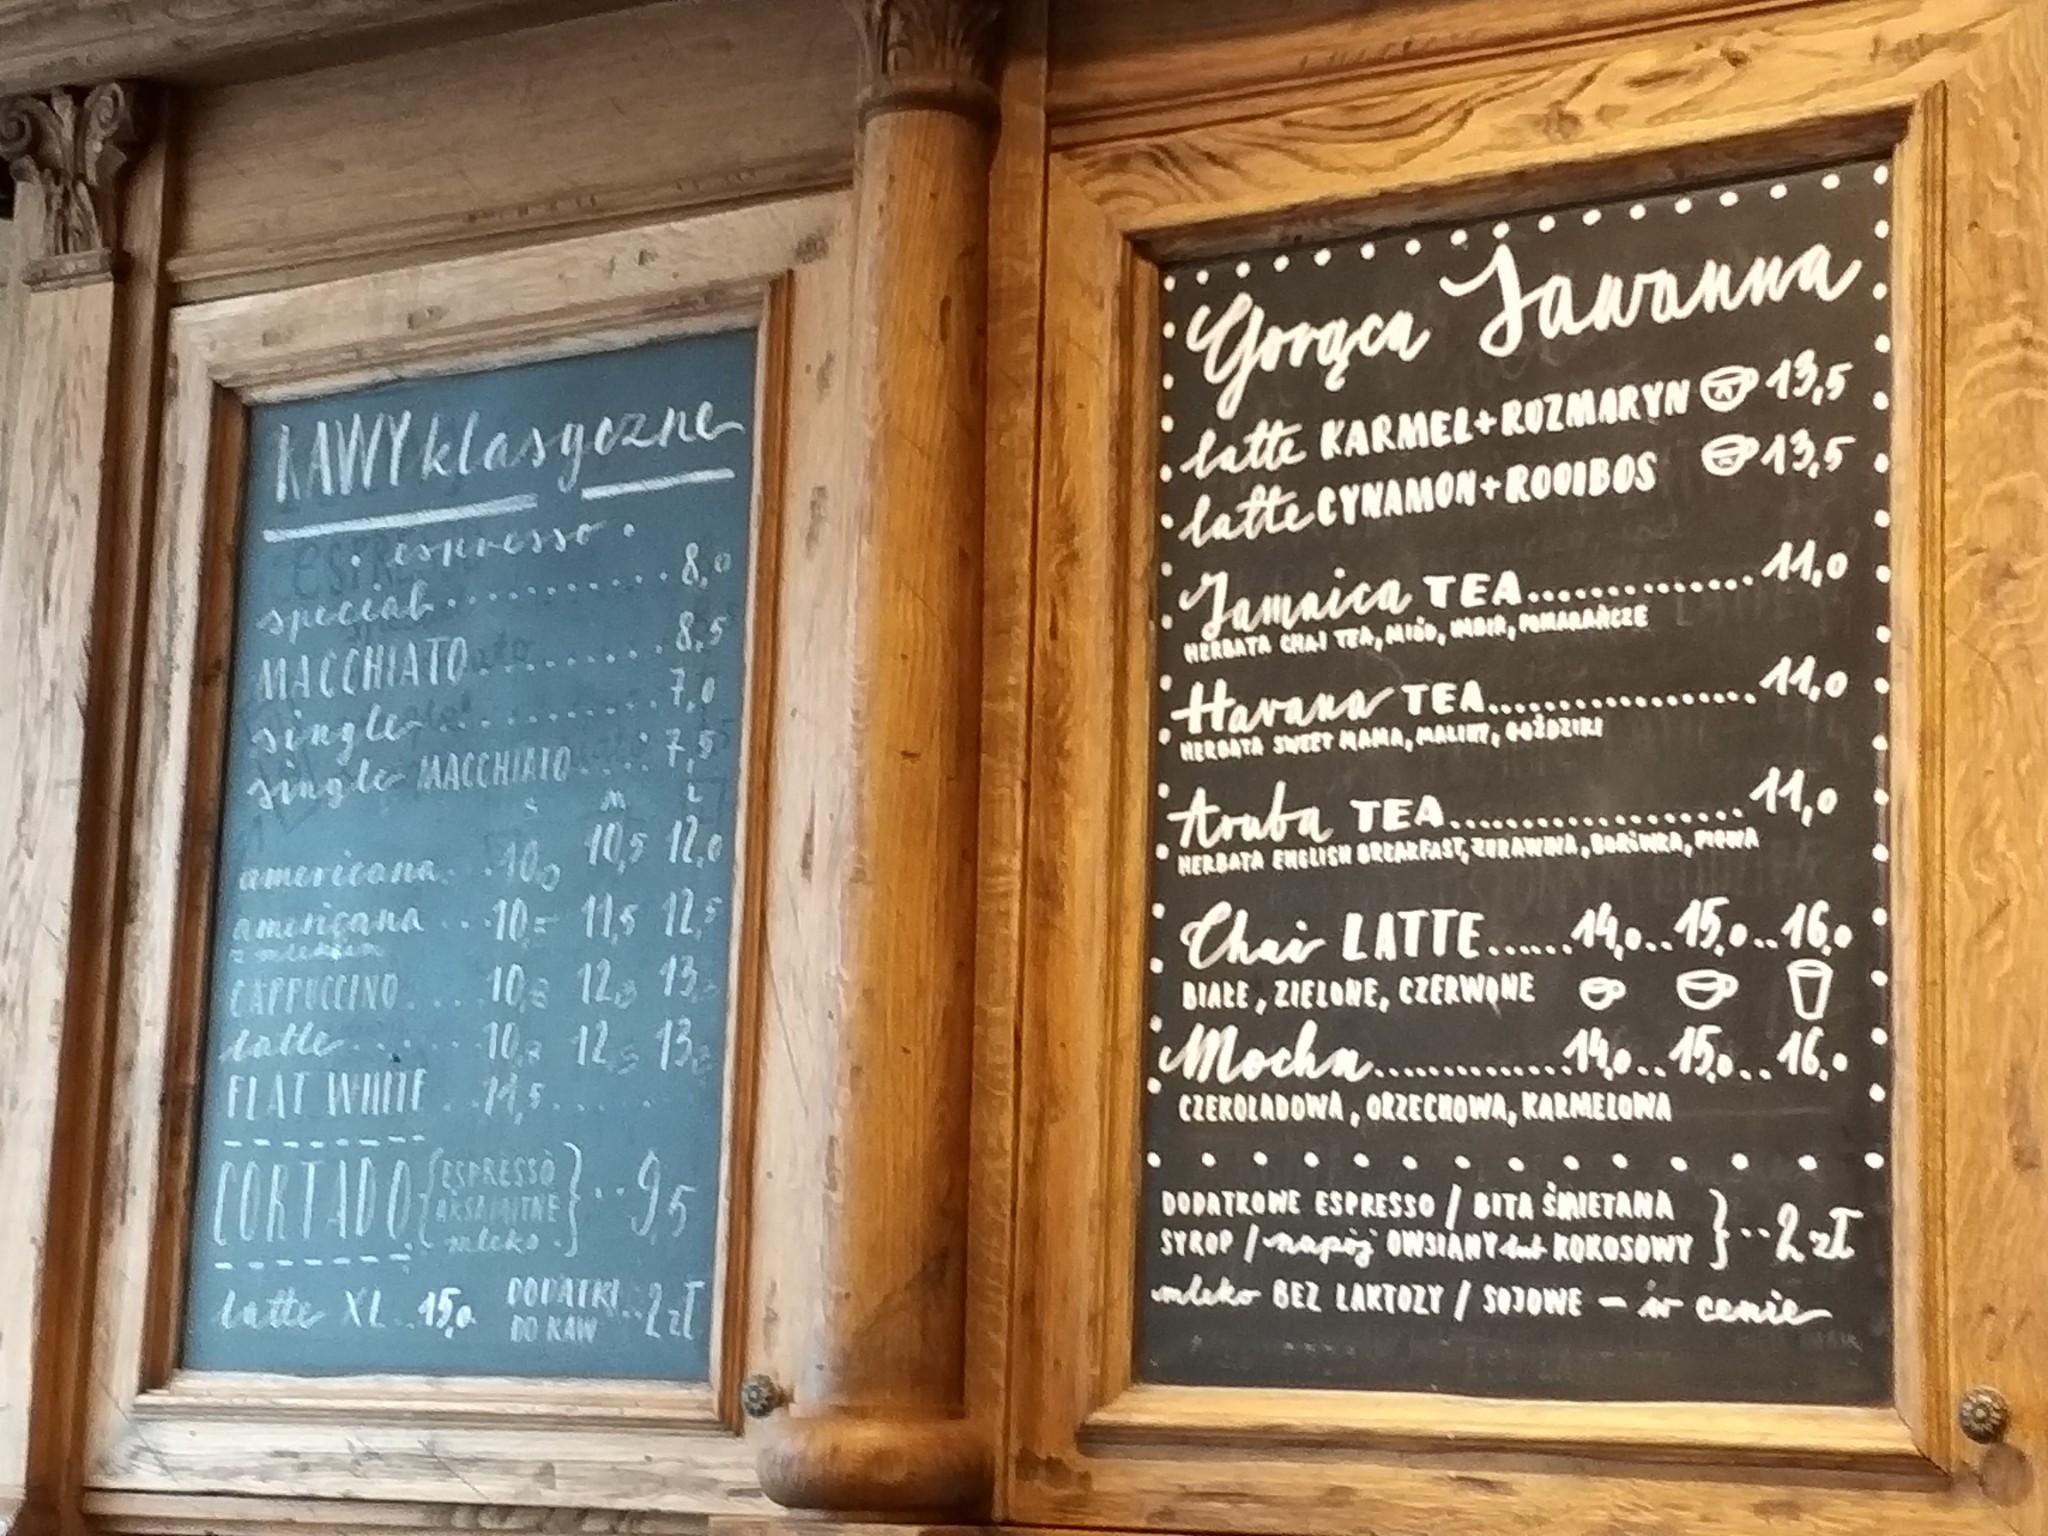 KAWY klasyczne
• espresso •
special.......... 8,0
MACCHIATO........ 8,5
single.......... 7,0
single MACCHIATO.... 7,5
S M L
americana. .10,0 10,5 12,0
americana ...10, 11,5 12,5
z mlekiem
CAPPUCCINO..... 10, 12, 13,
latte....... 10, 12, 13,
FLAT WHITE ..11,5....
CORTADO {ESPRESSO AKSAMITNE mleko} .. 9,5
latte XL..15,0 DODATKI DO KAW ..2 zł
Gorąca Jawanna
latte KARMEL+ROZMARYN 13,5
latte CYNAMON+ROOIBOS 13,5
Jamaica TEA.............. 11,0
HERBATA CHAI TEA, MIÓD, IMBIR, POMARAŃCZE
Havana TEA................. 11,0
HERBATA SWEET MAMA, MALINY, GOŹDZIKI
Aruba TEA.................. 11,0
HERBATA ENGLISH BREAKFAST, ŻURAWINA, BORÓWKA, PIGWA
Chai LATTE......14,0..15,0..16,0
BIAŁE, ZIELONE, CZERWONE
Mocha..............14,0..15,0..16,0
CZEKOLADOWA, ORZECHOWA, KARMELOWA
DODATKOWE ESPRESSO / BITA ŚMIETANA
SYROP / napój OWSIANY lub KOKOSOWY } ..2 zł
mleko BEZ LAKTOZY / SOJOWE – w cenie